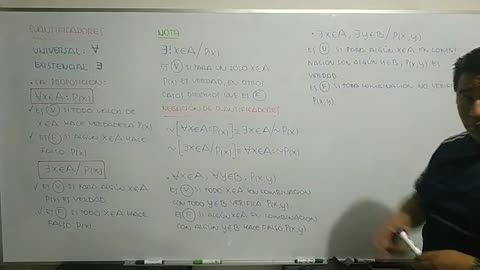 CUANTIFICADORES
UNIVERSAL: ∀
EXISTENCIAL ∃
• LA PROPOSICION:
∀x∈A: P(x)
✓ ES (V) SI TODO VALOR DE
x∈A HACE VERDADERA P(x)
✓ ES (F) SI ALGÚN x∈A HACE
FALSO P(x)
∃x∈A / P(x)
✓ ES (V) SI PARA ALGÚN x∈A
P(x) ES VERDAD.
✓ ES (F) SI TODO x∈A HACE
FALSO P(x)
NOTA
∃! x∈A / P(x)
ES (V) SI PARA UN SOLO x∈A
P(x) ES VERDAD, EN OTROS
CASOS DIREMOS QUE ES (F)
NEGACIÓN DE CUANTIFICADORES
~[∀x∈A: P(x)] ≡ ∃x∈A / ~P(x)
~[∃x∈A / P(x)] ≡ ∀x∈A: ~P(x)
• ∀x∈A, ∀y∈B: P(x,y)
ES (V) SI TODO x∈A EN COMBINACION
CON TODO y∈B VERIFICA P(x,y)
ES (F) SI ALGÚN x∈A EN COMBINACION
CON ALGÚN y∈B HACE FALSO P(x,y)
• ∃x∈A, ∃y∈B / P(x,y)
ES (V) SI PARA ALGÚN x∈A EN COMBI-
NACION CON ALGÚN y∈B, P(x,y) ES
VERDAD.
ES (F) SI TODA COMBINACION NO VERIFI
P(x,y)